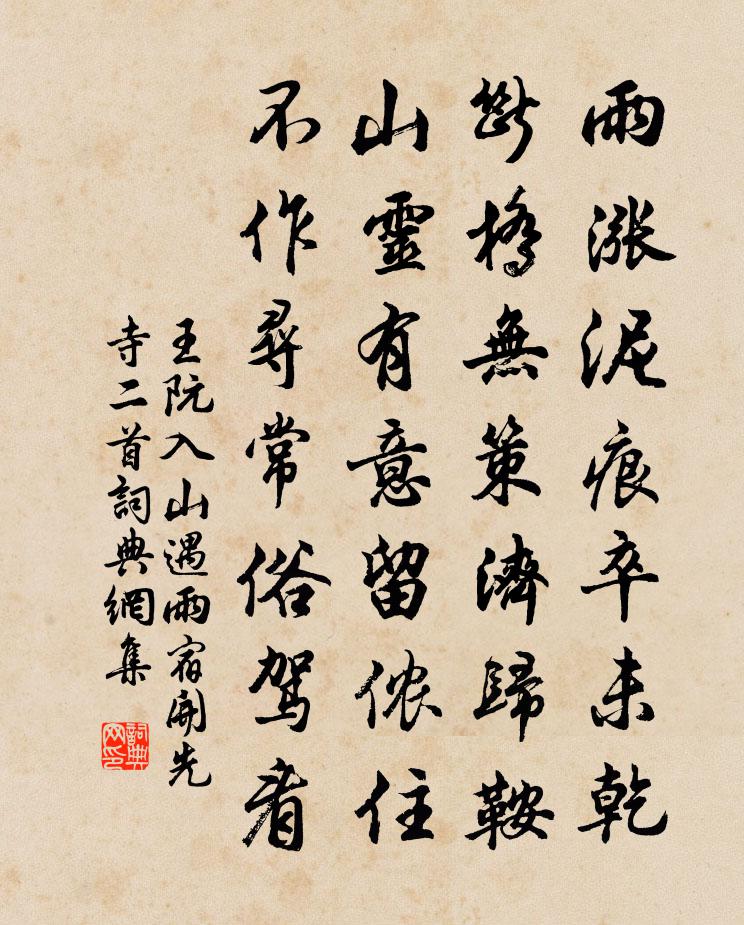 雨漲泥痕卒未乾
斷橋無策濟歸鞍
山靈有意留儂住
不作尋常俗駕看
王阮入山遇雨宿開先
寺二首詞典網集
詞典
网印